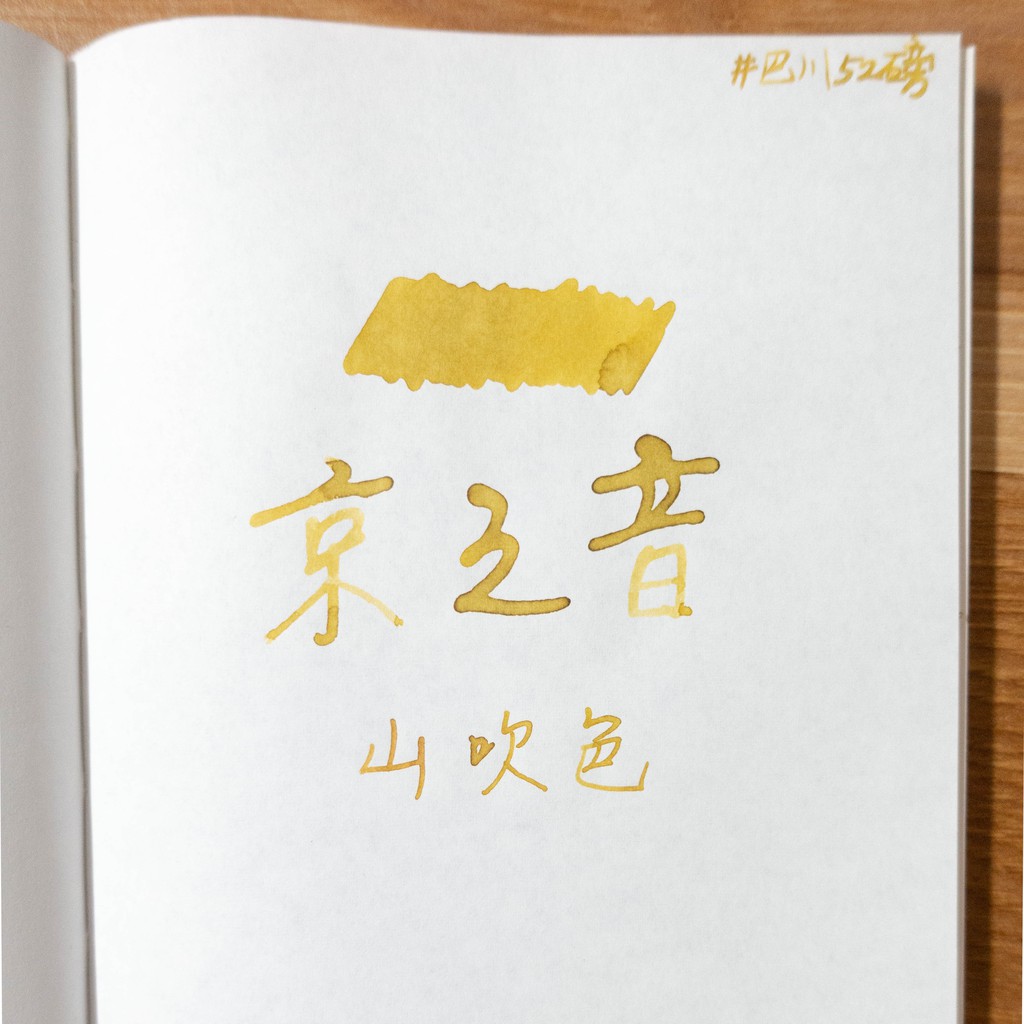 #巴川52磅
京之音
山吹色